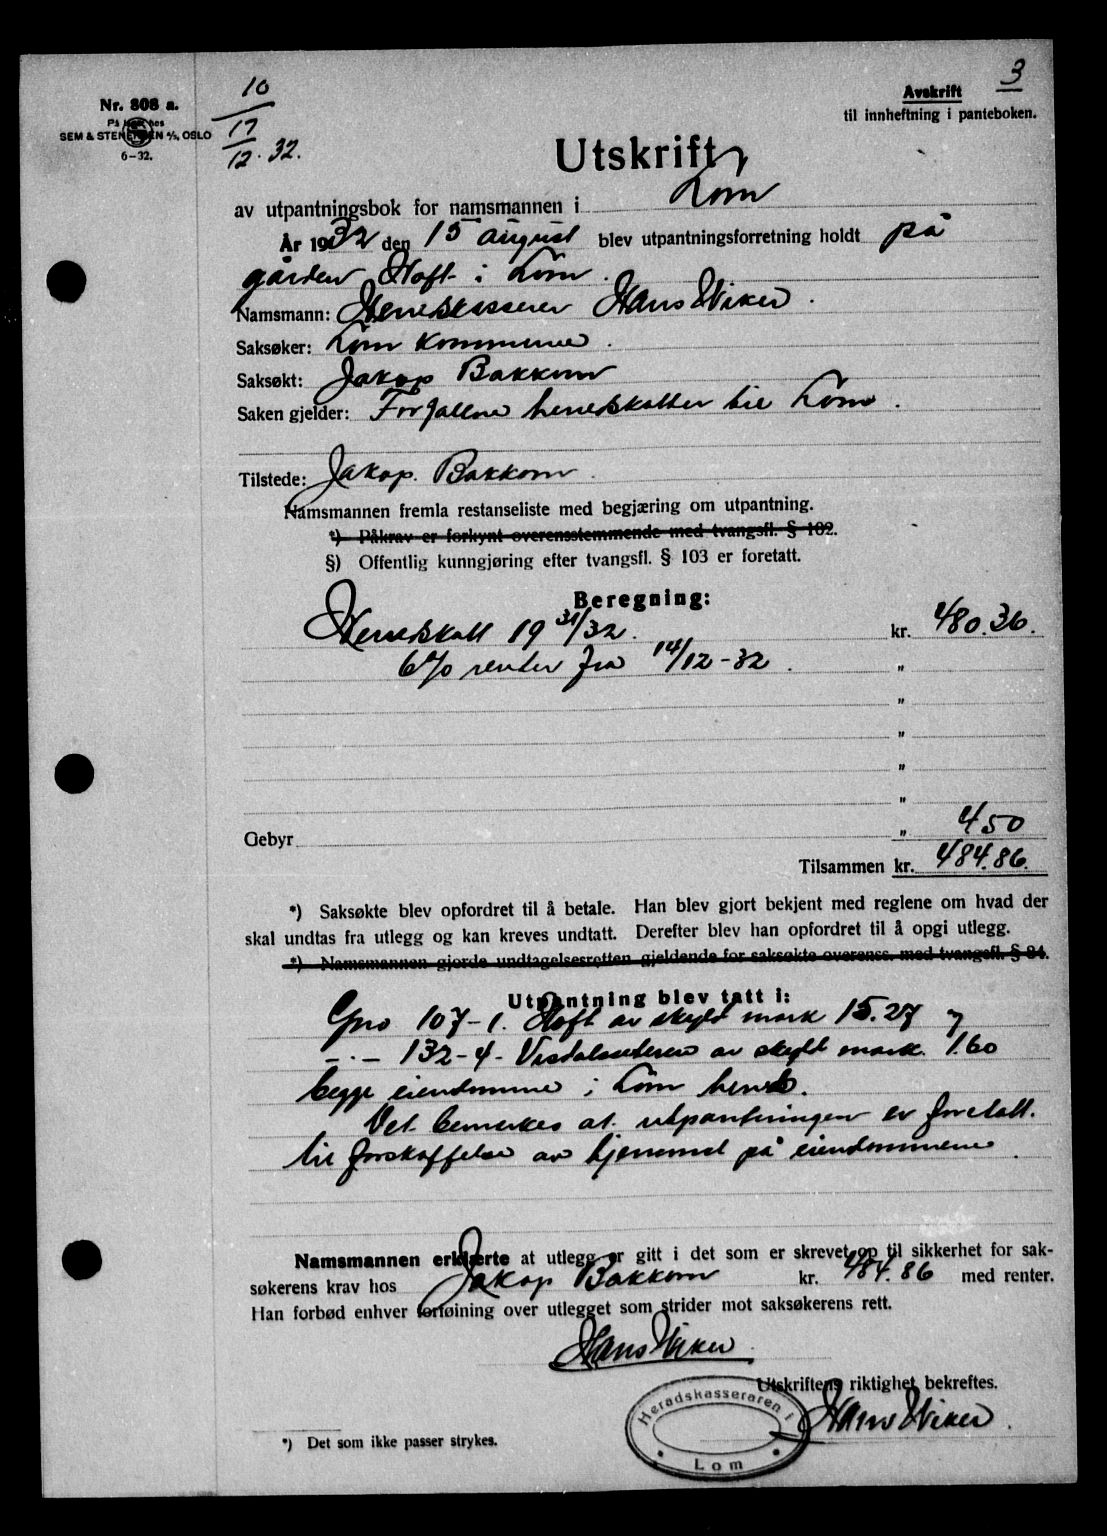 3
10
17
12 . 32.
Nr. 808 a.
SEM & STENERSEN A/S, OSLO
6-32.
Avskrift
til innheftning i panteboken.
Utskrift
av utpantningsbok for namsmannen i Lom
År 1932 den 15 august blev utpantningsforretning holdt på
gården Hoft i Lom.
Namsmann: Herredskasserer Hans Wiker.
Saksøker: Lom kommune.
Saksøkt: Jakop Bakkom
Saken gjelder: Forfallne herredskatter til Lom.
Tilstede: Jakop Bakkom.
Namsmannen fremla restanseliste med begjæring om utpantning.
*) Påkrav er forkynt overensstemmende med tvangsfl. § 102.
§) Offentlig kunngjøring efter tvangsfl. § 103 er foretatt.
Beregning:
Herredskatt 19 31/32. kr. 480.36.
6% renter fra 14/12-32. "
"
"
"
"
Gebyr " 4 50
Tilsammen kr. 484.86.
*) Saksøkte blev opfordret til å betale. Han blev gjort bekjent med reglene om hvad der
skal undtas fra utlegg og kan kreves undtatt. Derefter blev han opfordret til å opgi utlegg.
*) Namsmannen gjorde undtagelsesretten gjeldende for saksøkte overenss. med tvangsfl. § 84.
Utpantning blev tatt i:
Gno 107-1. Hoft av skyld mark 15.27
-.- 132-4- Visdalsseteren av skyld mark. 1.60
begge eiendomme i Lom herred.
Det bemerkes at utpantningen er foretatt.
til forskaffelse av hjemmel på eiendommene.
Namsmannen erklærte at utlegg er gitt i det som er skrevet op til sikkerhet for sak-
søkerens krav hos Jakop Bakkom kr. 484.86 med renter.
Han forbød enhver forføining over utlegget som strider mot saksøkerens rett.
Hans Wiker
Utskriftens riktighet bekreftes.
Hans Wiker.
Heradskasseraren i
Lom
*) Det som ikke passer strykes.